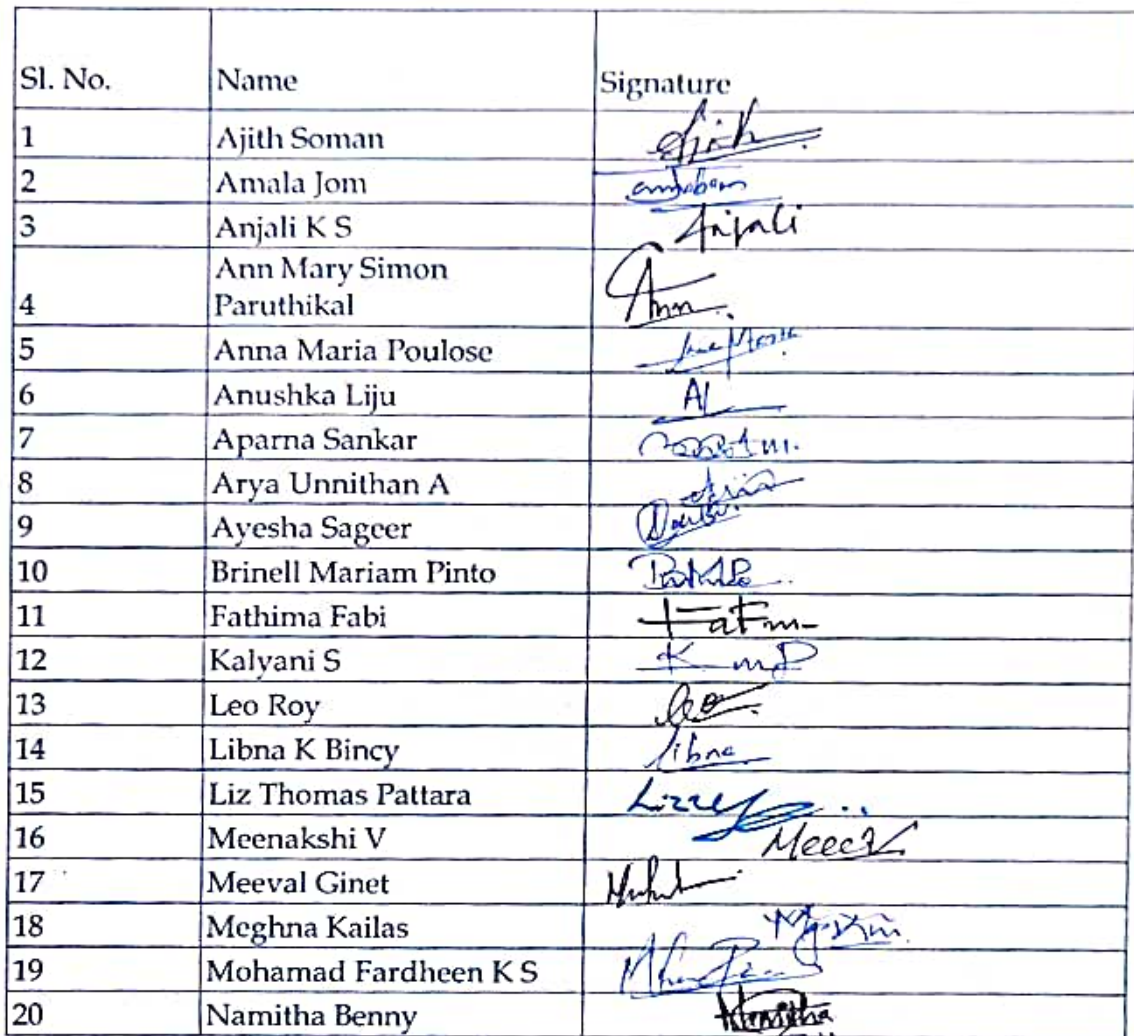 Sl. No. Name Signature
1 Ajith Soman Ajith
2 Amala Jom
3 Anjali K S Anjali
Ann Mary Simon
4 Paruthikal Ann
5 Anna Maria Poulose
6 Anushka Liju AL
7 Aparna Sankar
8 Arya Unnithan A
9 Ayesha Sageer
10 Brinell Mariam Pinto
11 Fathima Fabi
12 Kalyani S
13 Leo Roy Leo
14 Libna K Bincy libna
15 Liz Thomas Pattara
16 Meenakshi V
17 Meeval Ginet
18 Meghna Kailas
19 Mohamad Fardheen K S
20 Namitha Benny Namitha